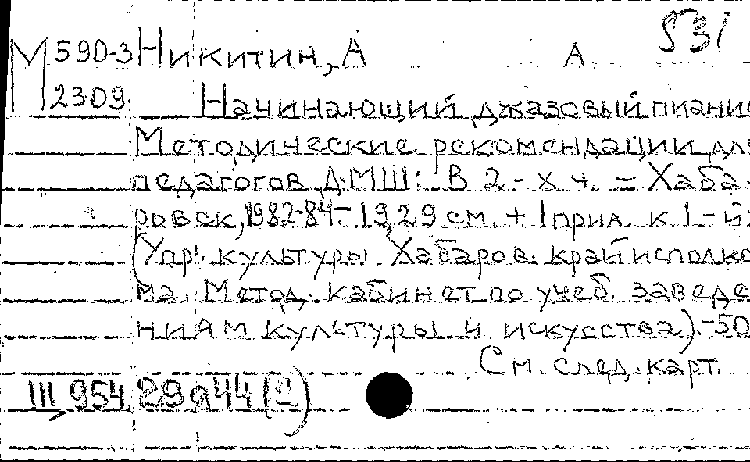 531
М 590-3 Никитин, А А.
2309 Начинающий джазовый пианис
Методические рекомендации для
педагогов ДМШ: В 2-х ч. - Хаба-
ровск, 1982-84 - 19,29 см. + 1 прил. к 1-й
(Упр. культуры Хабаров. крайисполко-
ма. Метод. кабинет по учеб. заведе-
ниям культуры и искусства). - 50
См. след. карт.
III, 954, 29 а44